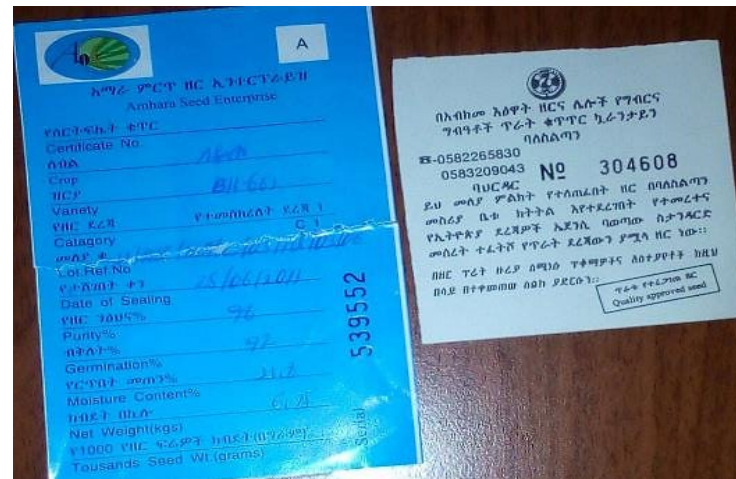 A
አማራ ምርጥ ዘር ኢንተርፕራይዝ
Amhara Seed Enterprise
የሰርተፍኬት ቁጥር
Certificate No.
ሰብል
Crop
ዝርያ BH-661
Variety
የዘር ደረጃ የተመሰከረለት ደረጃ 1
Catagory C 1
Lot.Ref.No
የታሸገበት ቀን 25/06/2011
Date of Sealing
የዘር ንፅህና%
Purity%
ብቅለት%
Germination%
የርጥበት መጠን%
Moisture Content%
ክብደት በኪሎ
Net Weight(kgs)
የ1000 የዘር ፍሬዎች ክብደት(በግራም)
Tousands Seed Wt.(grams)
Serial 539552
በአብክመ እፅዋት ዘርና ሌሎች የግብርና
ግብዓቶች ጥራት ቁጥጥር ኳራንታይን
ባለስልጣን
☎-0582265830
0583209043 № 304608
ባህርዳር
ይህ መለያ ምልክት የተለጠፈበት ዘር በባለስልጣን
መስሪያ ቤቱ ክትትል እየተደረገበት የተመረተና
የኢትዮጵያ ደረጃዎች ኤጀንሲ ባወጣው ስታንዳርድ
መሰረት ተፈትሾ የጥራት ደረጃውን ያሟላ ዘር ነው፡፡
በዘር ጥራት ዙሪያ ለሚነሱ ጥቆማዎችና ለአስተያየቶች ከዚህ
በላይ በተቀመጠው ስልክ ያድርሱን፡፡
ጥራቱ የተረጋገጠ ዘር
Quality approved seed